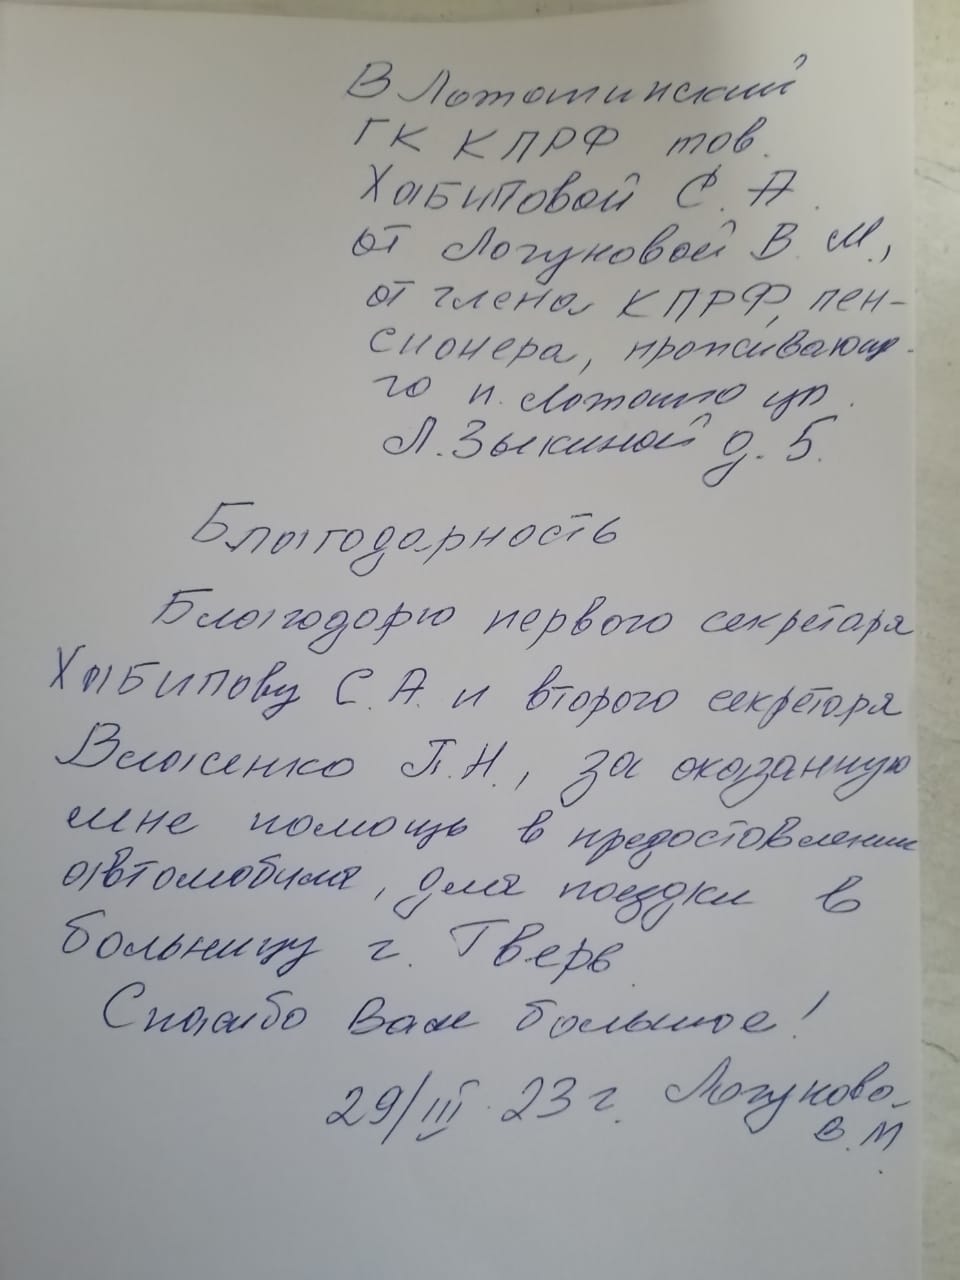 В Лотошинский
ГК КПРФ тов.
Хабиповой С. А.
от Логуновой В. М.,
от члена КПРФ, пен-
сионера, проживающ-
го п. Лотошино ул.
Л. Зыкиной д. 5.
Благодарность
Благодарю первого секретаря
Хабипову С. А. и второго секретаря
Власенко П. Н., за оказанную
мне помощь в предоставлении
автомобиля, для поездки в
больницу г. Тверь
Спасибо Вам большое!
29/III 23 г. Логунова
В. М.